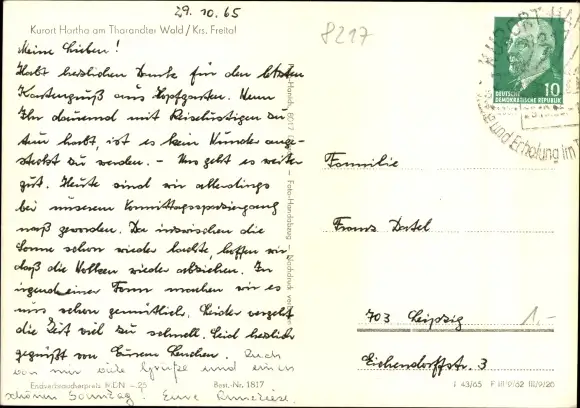 29.10.65
Kurort Hartha am Tharandter Wald / Krs. Freital
8217
KURORT HA
DEUTSCHE
DEMOKRATISCHE REPUBLIK
10
und Erholung im T
Meine Lieben!
Habt herzlichen Dank für den letzten
Kartengruß aus Hopfgarten. Wenn
Ihr dauernd mit Reiselustigen zu
tun habt, ist es kein Wunder ange-
steckt zu werden. – Uns geht es weiter
gut. Heute sind wir allerdings
bei unserem Vormittagsspaziergang
naß geworden. Da inzwischen die
Sonne schon wieder lachte, hoffen wir
daß die Wolken wieder abziehen. In
irgend einer Form machen wir es
uns schon gemütlich. Leider vergeht
die Zeit viel zu schnell. Seid herzlich
gegrüßt von Eurem Lenchen. Auch
von mir viele Grüße und einen
schönen Sonntag. Eure Anneliese.
Endverbraucherpreis MDN –.25
Best.-Nr. 1817
Foto-Handabzug – Nachdruck
Familie
Franz Datel
703 Leipzig
1.-
Eichendorffstr. 3
J 43/65 F III/9/62 III/9/20